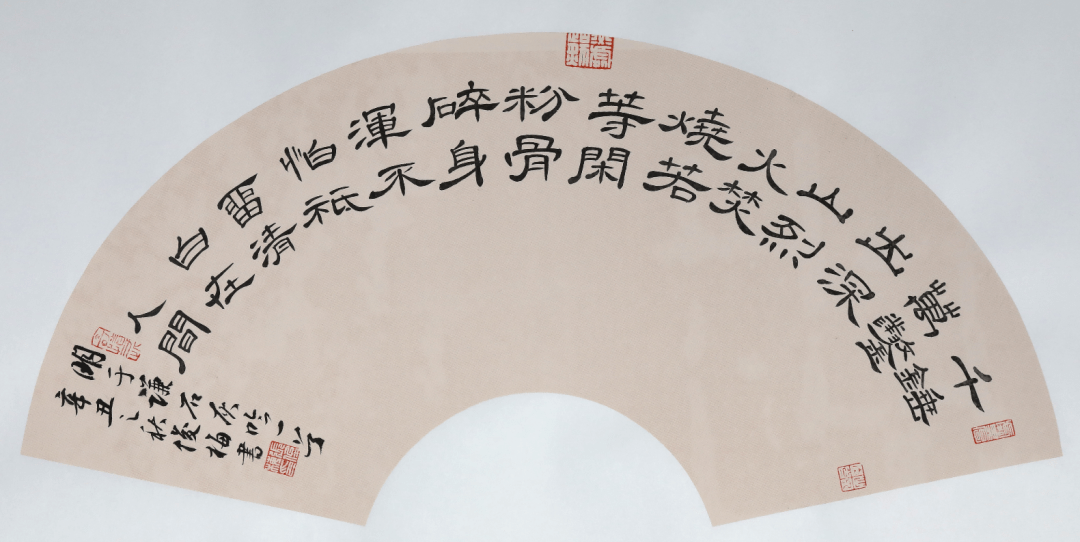 千錘
萬鑿
出深
山烈
火焚
燒若
等閑
粉骨
碎身
渾不
怕祇
留清
白在
人間
明于謙石灰吟一首
辛丑之秋俊梅書